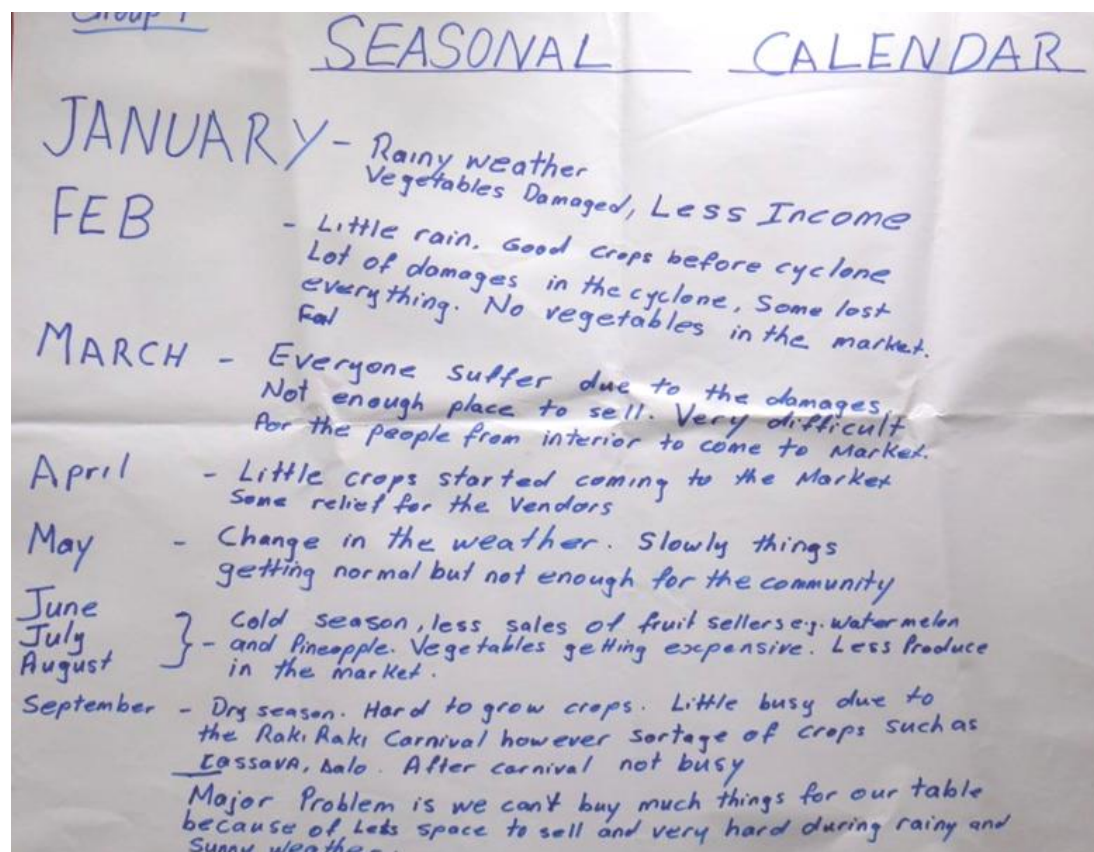 Group 1
SEASONAL CALENDAR
JANUARY - Rainy weather
Vegetables Damaged, Less Income
FEB - Little rain. Good crops before cyclone
Lot of damages in the cyclone, Some lost
everything. No vegetables in the market.
MARCH - Everyone suffer due to the damages,
Not enough place to sell. Very difficult
for the people from interior to come to Market.
April - Little crops started coming to the Market
Some relief for the Vendors
May - Change in the weather. Slowly things
getting normal but not enough for the community
June
July
August
} - Cold season, less sales of fruit sellers e.g. watermelon
and Pineapple. Vegetables getting expensive. Less Produce
in the market.
September - Dry season. Hard to grow crops. Little busy due to
the Raki Raki Carnival however sortage of crops such as
Cassava, Dalo. After carnival not busy
Major Problem is we can't buy much things for our table
because of Less space to sell and very hard during rainy and
Sunny weather